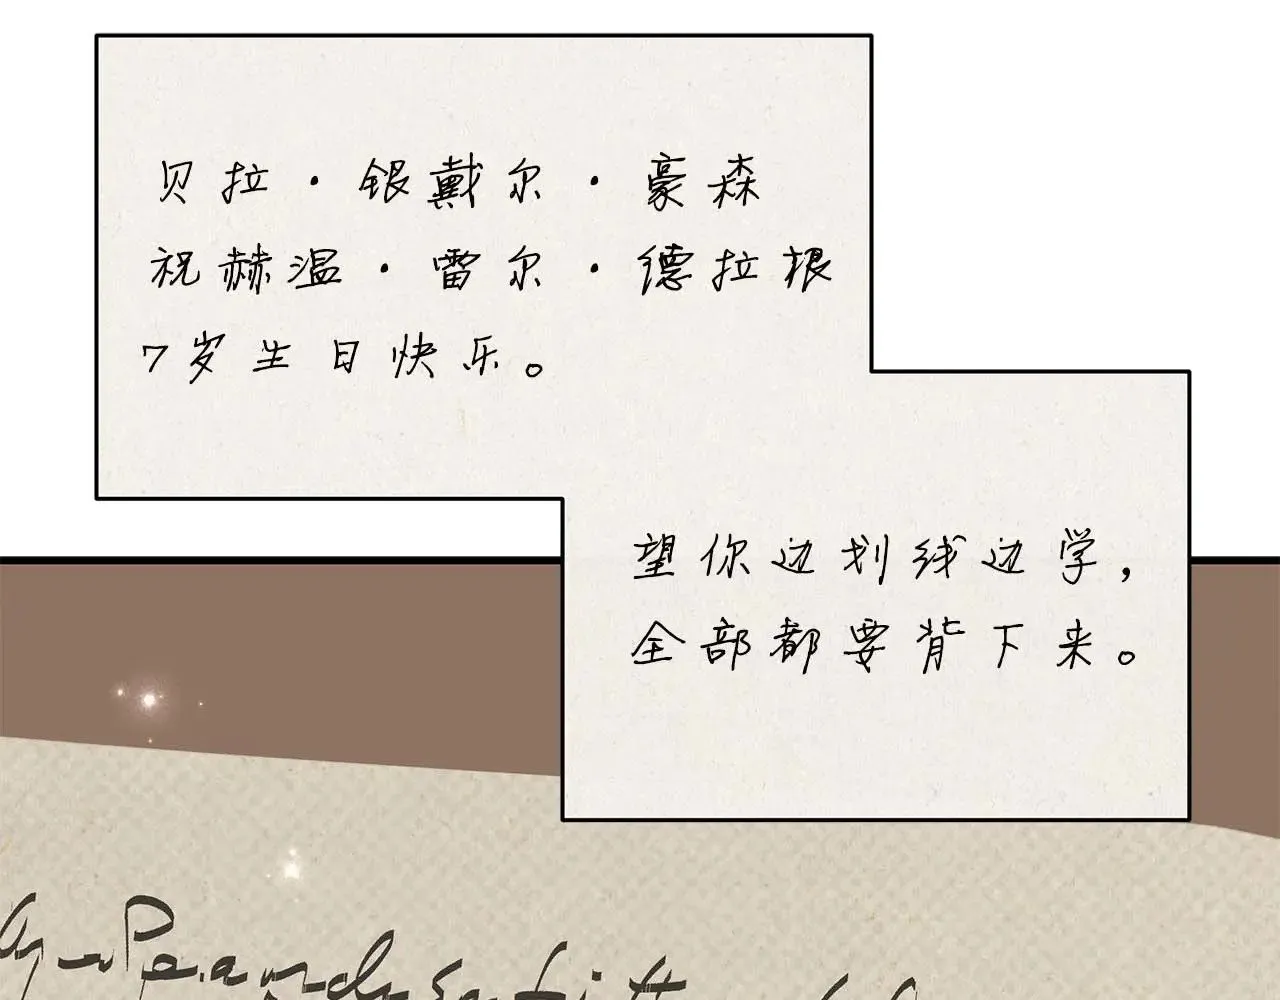 贝拉·银戴尔·豪森
祝赫温·雷尔·德拉根
7岁生日快乐。
望你边划线边学，
全部都要背下来。